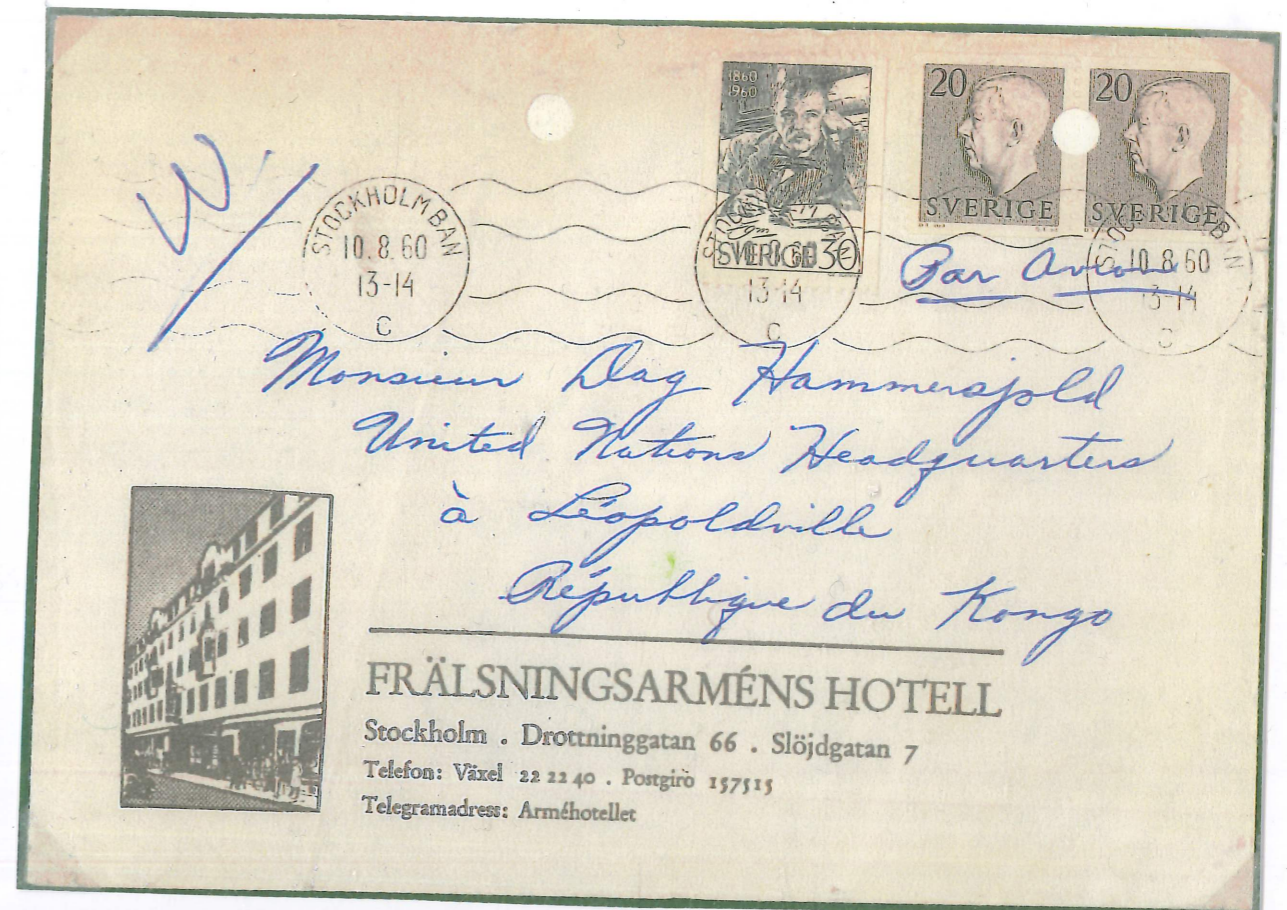 1860
1960
SVERIGE 30
20
SVERIGE
20
SVERIGE
STOCKHOLM BAN
10.8.60
13-14
C
STOCKHOLM BAN
10.8.60
13-14
C
STOCKHOLM BAN
10.8.60
13-14
C
Par Avion
Monsieur Dag Hammersjold
United Nations Headquarters
à Léopoldville
République du Kongo
FRÄLSNINGSARMÉNS HOTELL
Stockholm . Drottninggatan 66 . Slöjdgatan 7
Telefon: Växel 22 22 40 . Postgiro 157515
Telegramadress: Arméhotellet